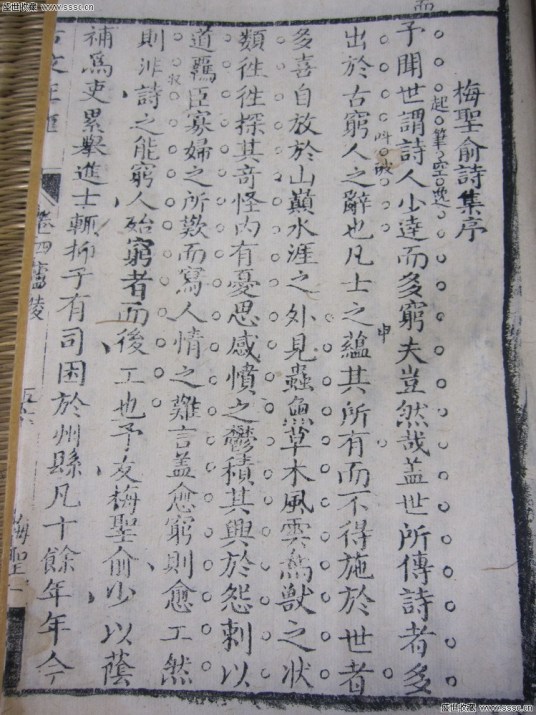 盛世收藏 www.sssc.cn
梅聖俞詩集序
起筆空逸
予聞世謂詩人少達而多窮夫豈然哉盖世所傳詩者多
叫破
申
出於古窮人之辭也凡士之蘊其所有而不得施於世者
多喜自放於山巔水涯之外見蟲魚草木風雲鳥獸之状
類徃徃探其奇怪内有憂思感憤之鬱積其興於怨刺以
收
道羈臣寡婦之所歎而寫人情之難言盖愈窮則愈工然
則非詩之能窮人殆窮者而後工也予友梅聖俞少以蔭
補爲吏累舉進士輒抑于有司困於州縣凡十餘年年今
卷四廬陵
梅聖
盛世收藏 www.sssc.cn